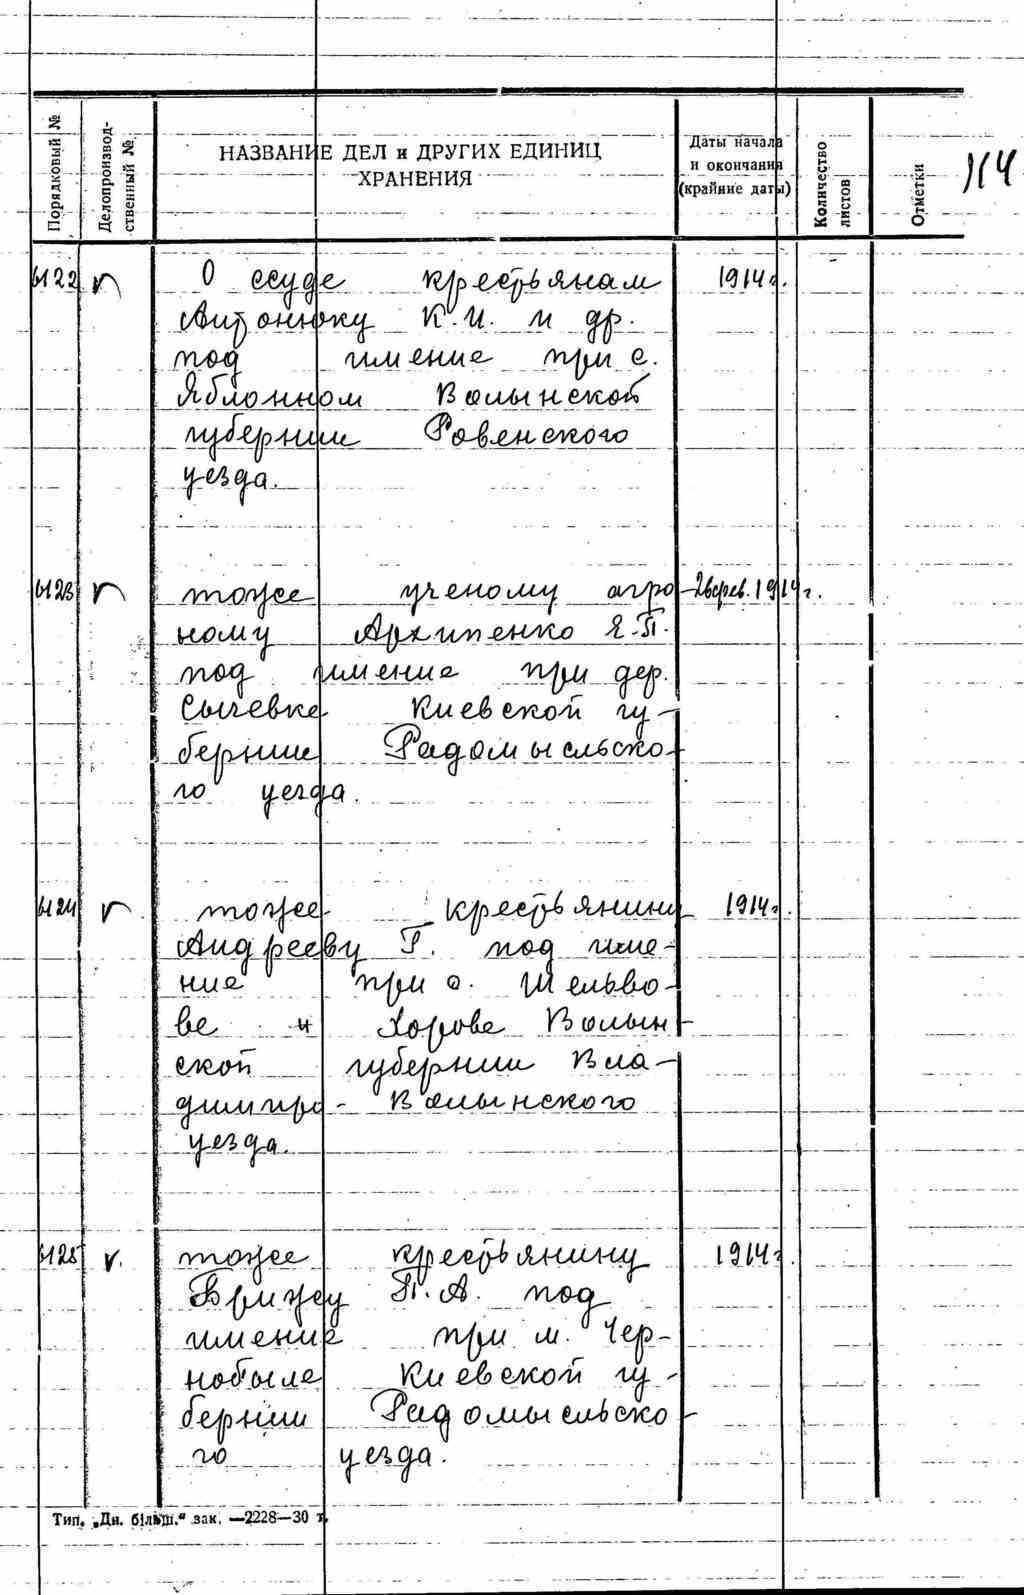 Порядковый №
Делопроизвод-
ственный №
НАЗВАНИЕ ДЕЛ и ДРУГИХ ЕДИНИЦ
ХРАНЕНИЯ
Даты начала
и окончания
(крайние даты)
Количество
листов
Отметки
114
6122 О ссуде крестьянам 1914 г.
Антонюку К.И. и др.
под имение при с.
Яблонном Волынской
губернии Ровенского
уезда.
6123 тоже ученому агро- 2 февр. 1914 г.
ному Архипенко Я.П.
под имение при дер.
Сычевке Киевской гу-
бернии Радомысльско-
го уезда.
6124 тоже крестьянину 1914 г.
Андрееву Г. под име-
ние при с. Шельво-
ве и Хорове Волын-
ской губернии Вла-
димиро-Волынского
уезда.
6125 тоже крестьянину 1914 г.
Брижу П.А. под
имение при м. Чер-
нобыле Киевской гу-
бернии Радомысльско-
го уезда.
Тип. „Дн. більш.“ зак. —2228—30 т.